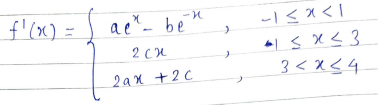 f'(x) = { ae^x - be^-x , -1 ≤ x < 1
2cx , 1 ≤ x ≤ 3
2ax + 2c , 3 < x ≤ 4